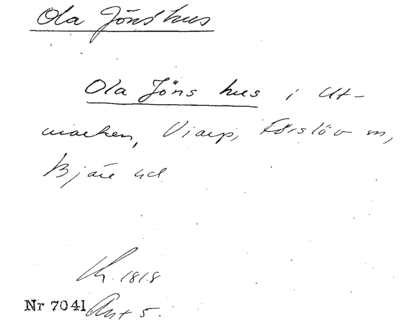 Ola Jöns hus
Ola Jöns hus i Ut-
marken, Viarp, Förslöv sn,
Bjäre hd
1818
Nr 7041 Ant 5.